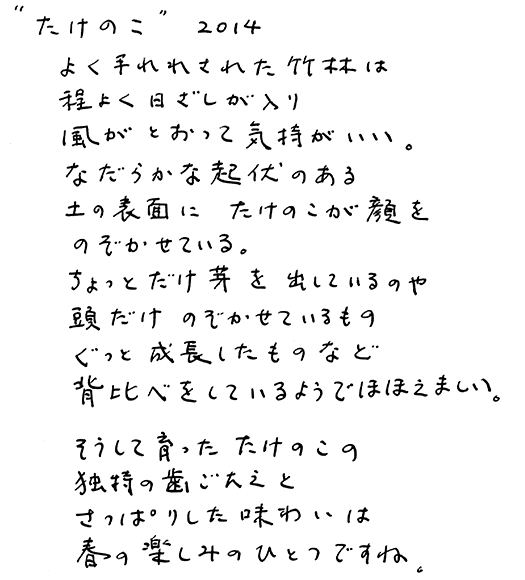 "たけのこ" 2014
よく手れれされた竹林は
程よく日ざしが入り
風がとおって気持がいい。
なだらかな起伏のある
土の表面に たけのこが顔を
のぞかせている。
ちょっとだけ芽を出しているのや
頭だけ のぞかせているもの
ぐっと成長したものなど
背比べをしているようでほほえましい。
そうして育った たけのこの
独特の歯ごたえと
さっぱりした味わいは
春の楽しみのひとつですね。